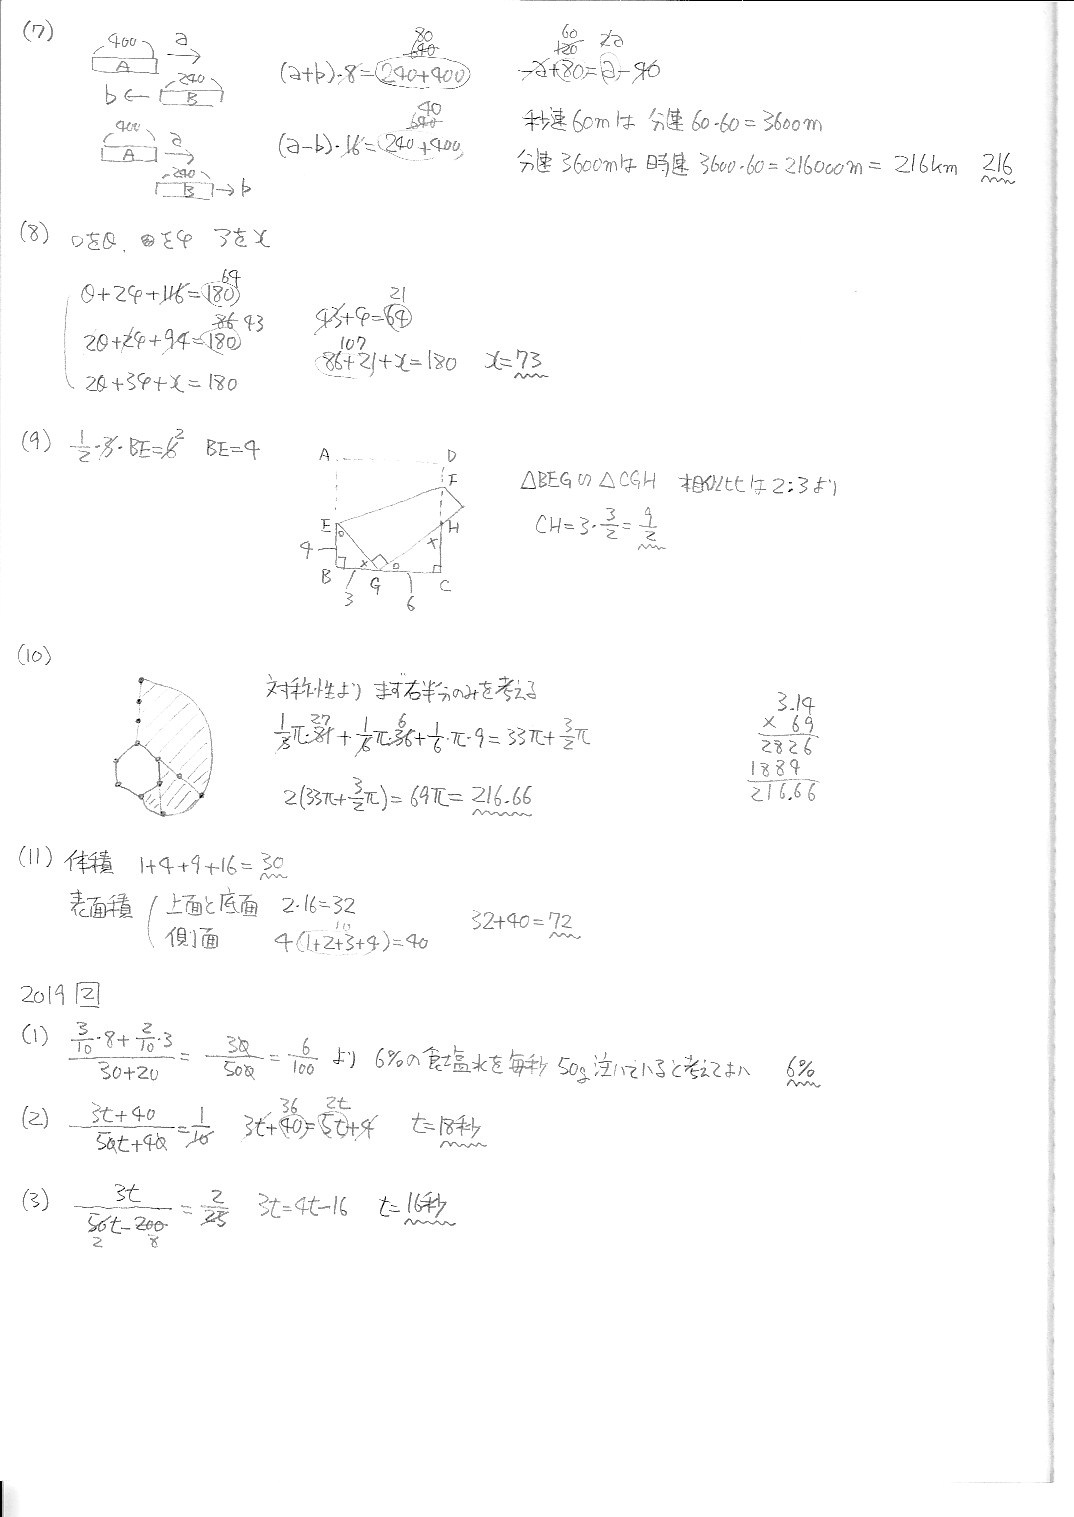 (7)
400 a 80 60 2a
A 640 120
240 (a+b)・8=240+400 -a+80=a-40
b B 40
400 640 秒速60mは 分速60・60=3600m
a (a-b)・16=240+400
A 分速3600mは時速3600・60=216000m=216km 216
240
B b
(8) ○をθ、◎をφ アをx
64
θ+2φ+116=180 21
86 43 43+φ=64
2θ+2φ+94=180 107
86+21+x=180 x=73
2θ+3φ+x=180
(9) 1/2・3・BE=6 2 BE=4
A D
F △BEG∽△CGH 相似比は2:3より
E H CH=3・3/2=9/2
4 ○ ×
B × G ○ C
3 6
(10)
対称性より まず右半分のみを考える
27 6
1/3π・81+1/6π・36+1/6・π・9=33π+3/2π
2(33π+3/2π)=69π=216.66
3.14
× 69
2826
1884
216.66
(11) 体積 1+4+9+16=30
表面積 上面と底面 2・16=32 32+40=72
10
側面 4(1+2+3+4)=40
2019 2
(1) 3/10・8+2/10・3 / 30+20 = 30/500 = 6/100 より 6%の食塩水を毎秒50g注いでいると考えてよい 6%
36 2t
(2) 3t+40 / 50t+40 = 1/10 3t+40=5t+4 t=18秒
(3) 3t / 50t-200 = 2/25 3t=4t-16 t=16秒
2 8